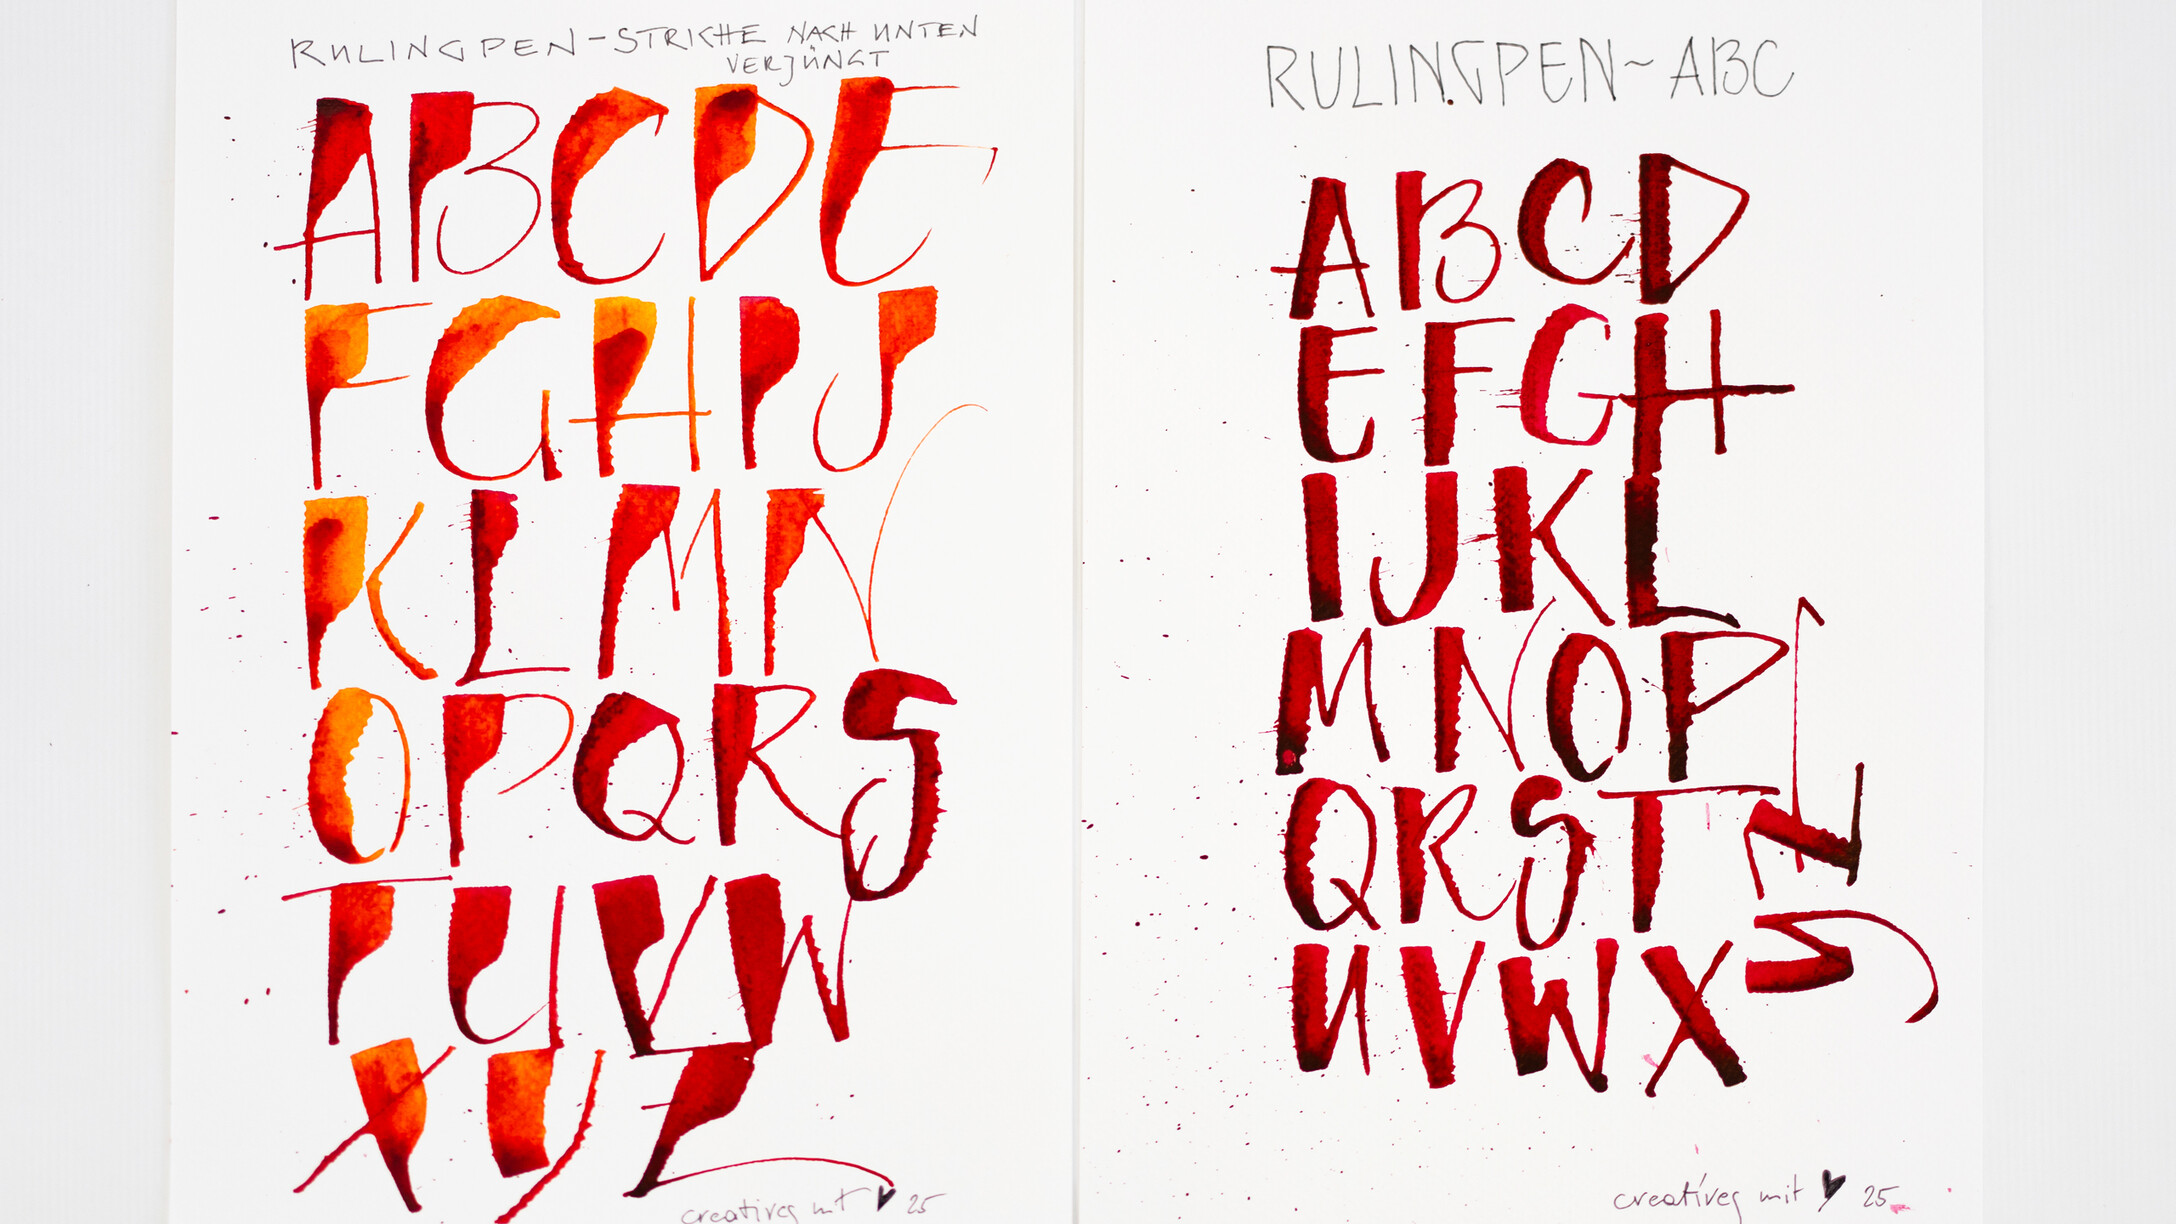 RULINGPEN-STRICHE NACH UNTEN
VERJÜNGT
ABCDE
FGHIJ
KLMN
OPQRS
TUVW
XYZ
creatives mit ♥ 25
RULINGPEN~ABC
ABCD
EFGH
IJKL
MNOP
QRST
UVWX
YZ
creatives mit ♥ 25